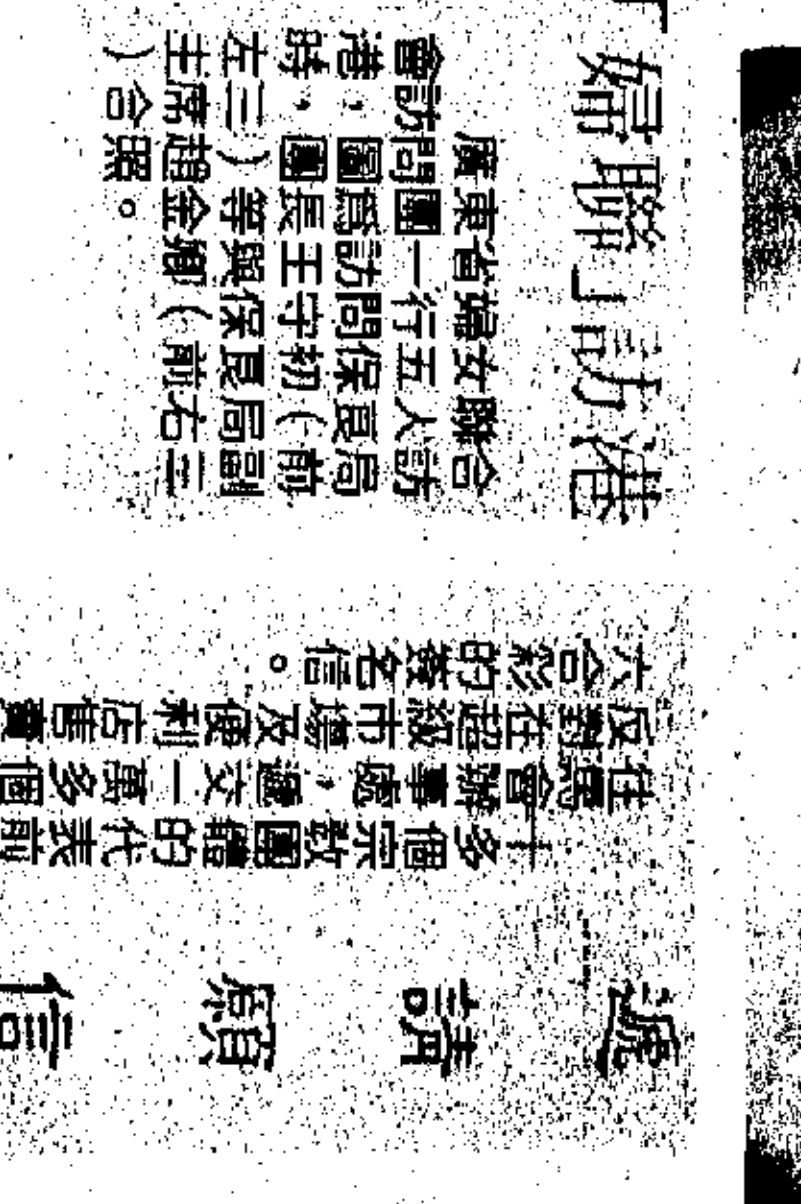 「婦聯」訪港
廣東省婦女聯合
會訪問團一行五人訪
港,圖爲訪問保良局
時,團長王守初(前
左三)等與保良局副
主席趙金卿(前右三
)合照。
遞請願信
十多個宗教團體的代表前
往馬會辦事處,遞交一萬多個
反對在超級市場及便利店售賣
六合彩的簽名信。